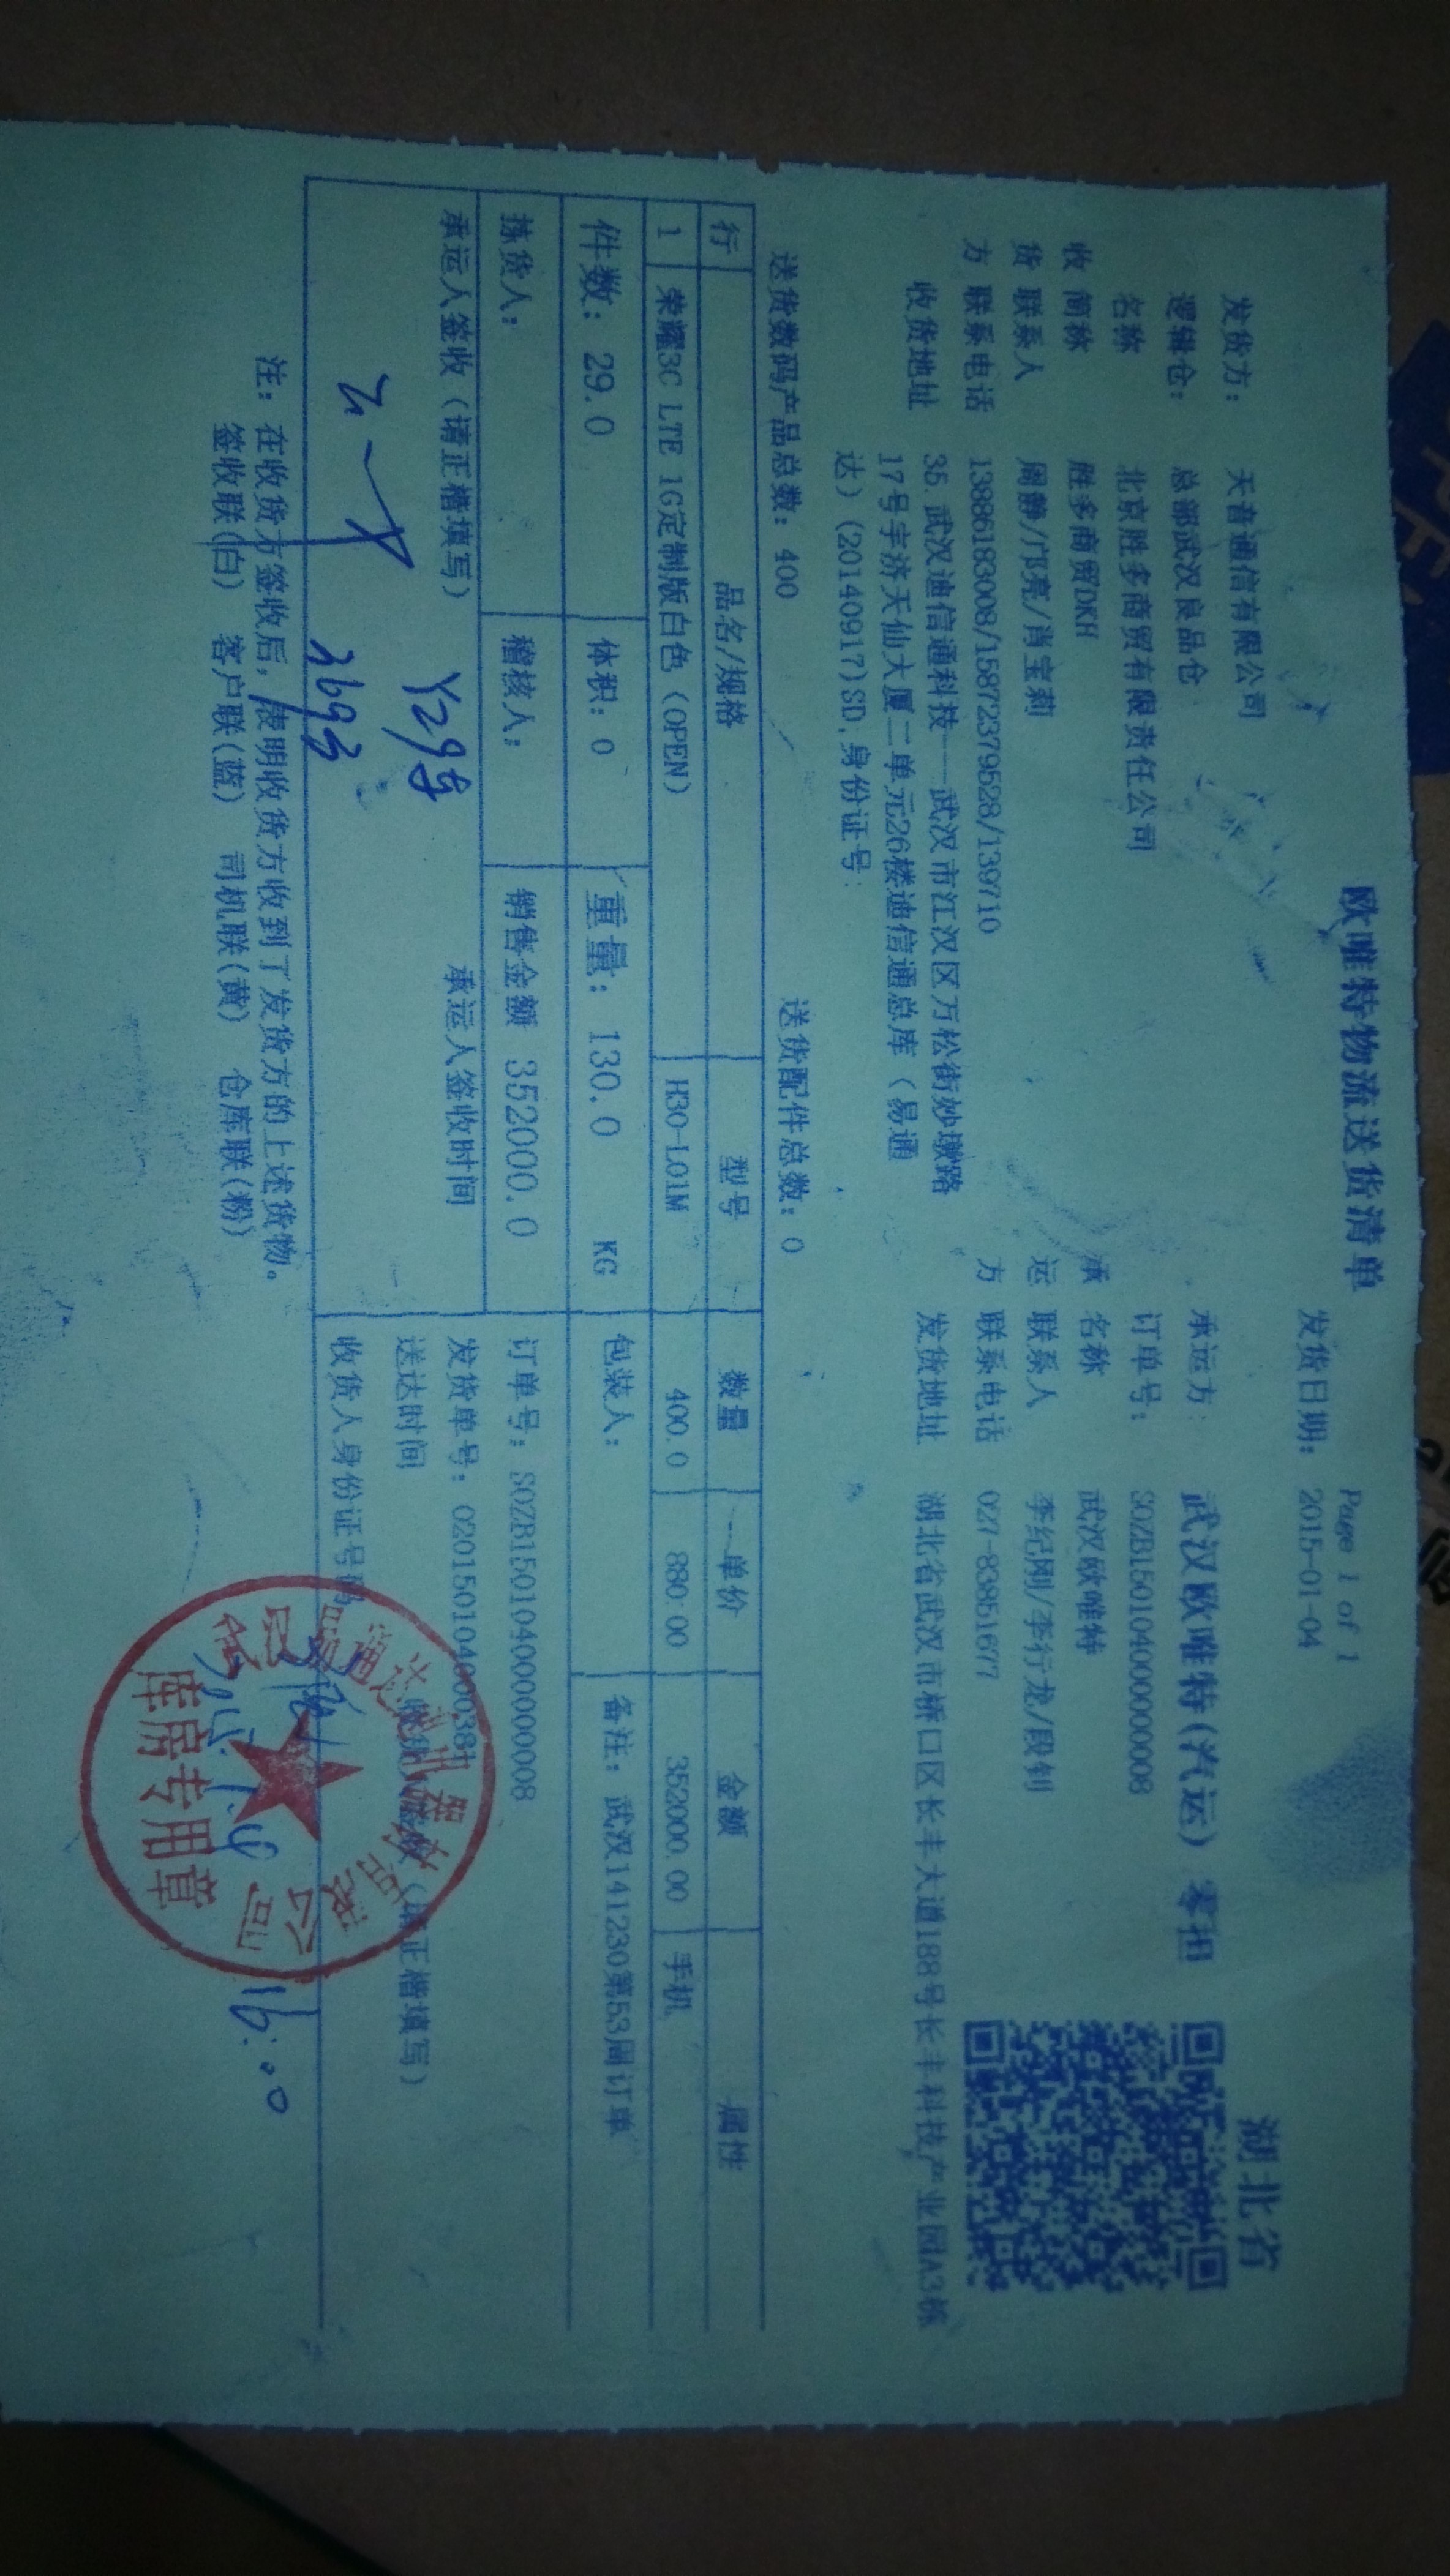 欧唯特物流送货清单
Page 1 of 1
发货日期： 2015-01-04
湖北省
发货方： 天音通信有限公司
承运方： 武汉欧唯特(汽运) 零担
逻辑仓： 总部武汉良品仓
订单号： SOZB150104000000008
名称 北京胜多商贸有限责任公司
名称 武汉欧唯特
收 简称 胜多商贸DKH
承
货 联系人 周静/邝亮/肖宝莉
运 联系人 李纪刚/李行龙/段钊
方 联系电话 13886183008/15872379528/139710
方 联系电话 027-83851677
收货地址 35.武汉迪信通科技---武汉市江汉区万松街妙墩路
17号宇济天仙大厦二单元26楼迪信通总库（易通
达）(20140917)SD;身份证号:
发货地址 湖北省武汉市桥口区长丰大道188号长丰科技产业园A3栋
送货数码产品总数：400 送货配件总数：0
行 品名/规格 型号 数量 单价 金额 属性
1 荣耀3C LTE 1G定制版白色（OPEN） H30-L01M 400.0 880.00 352000.00 手机
件数： 29.0 体积：0 重量： 130.0 KG 包装人： 备注：武汉141230第53周订单
拣货人： 稽核人： 销售金额 352000.0
订单号：SOZB150104000000008
承运人签收（请正楷填写） 承运人签收时间
发货单号：020150104000381
送达时间 收货人签收（请正楷填写）
收货人身份证号码
16:00
武汉易通达 公司
库房专用章
注：在收货方签收后，表明收货方收到了发货方的上述货物。
签收联(白) 客户联(蓝) 司机联(黄) 仓库联(粉)